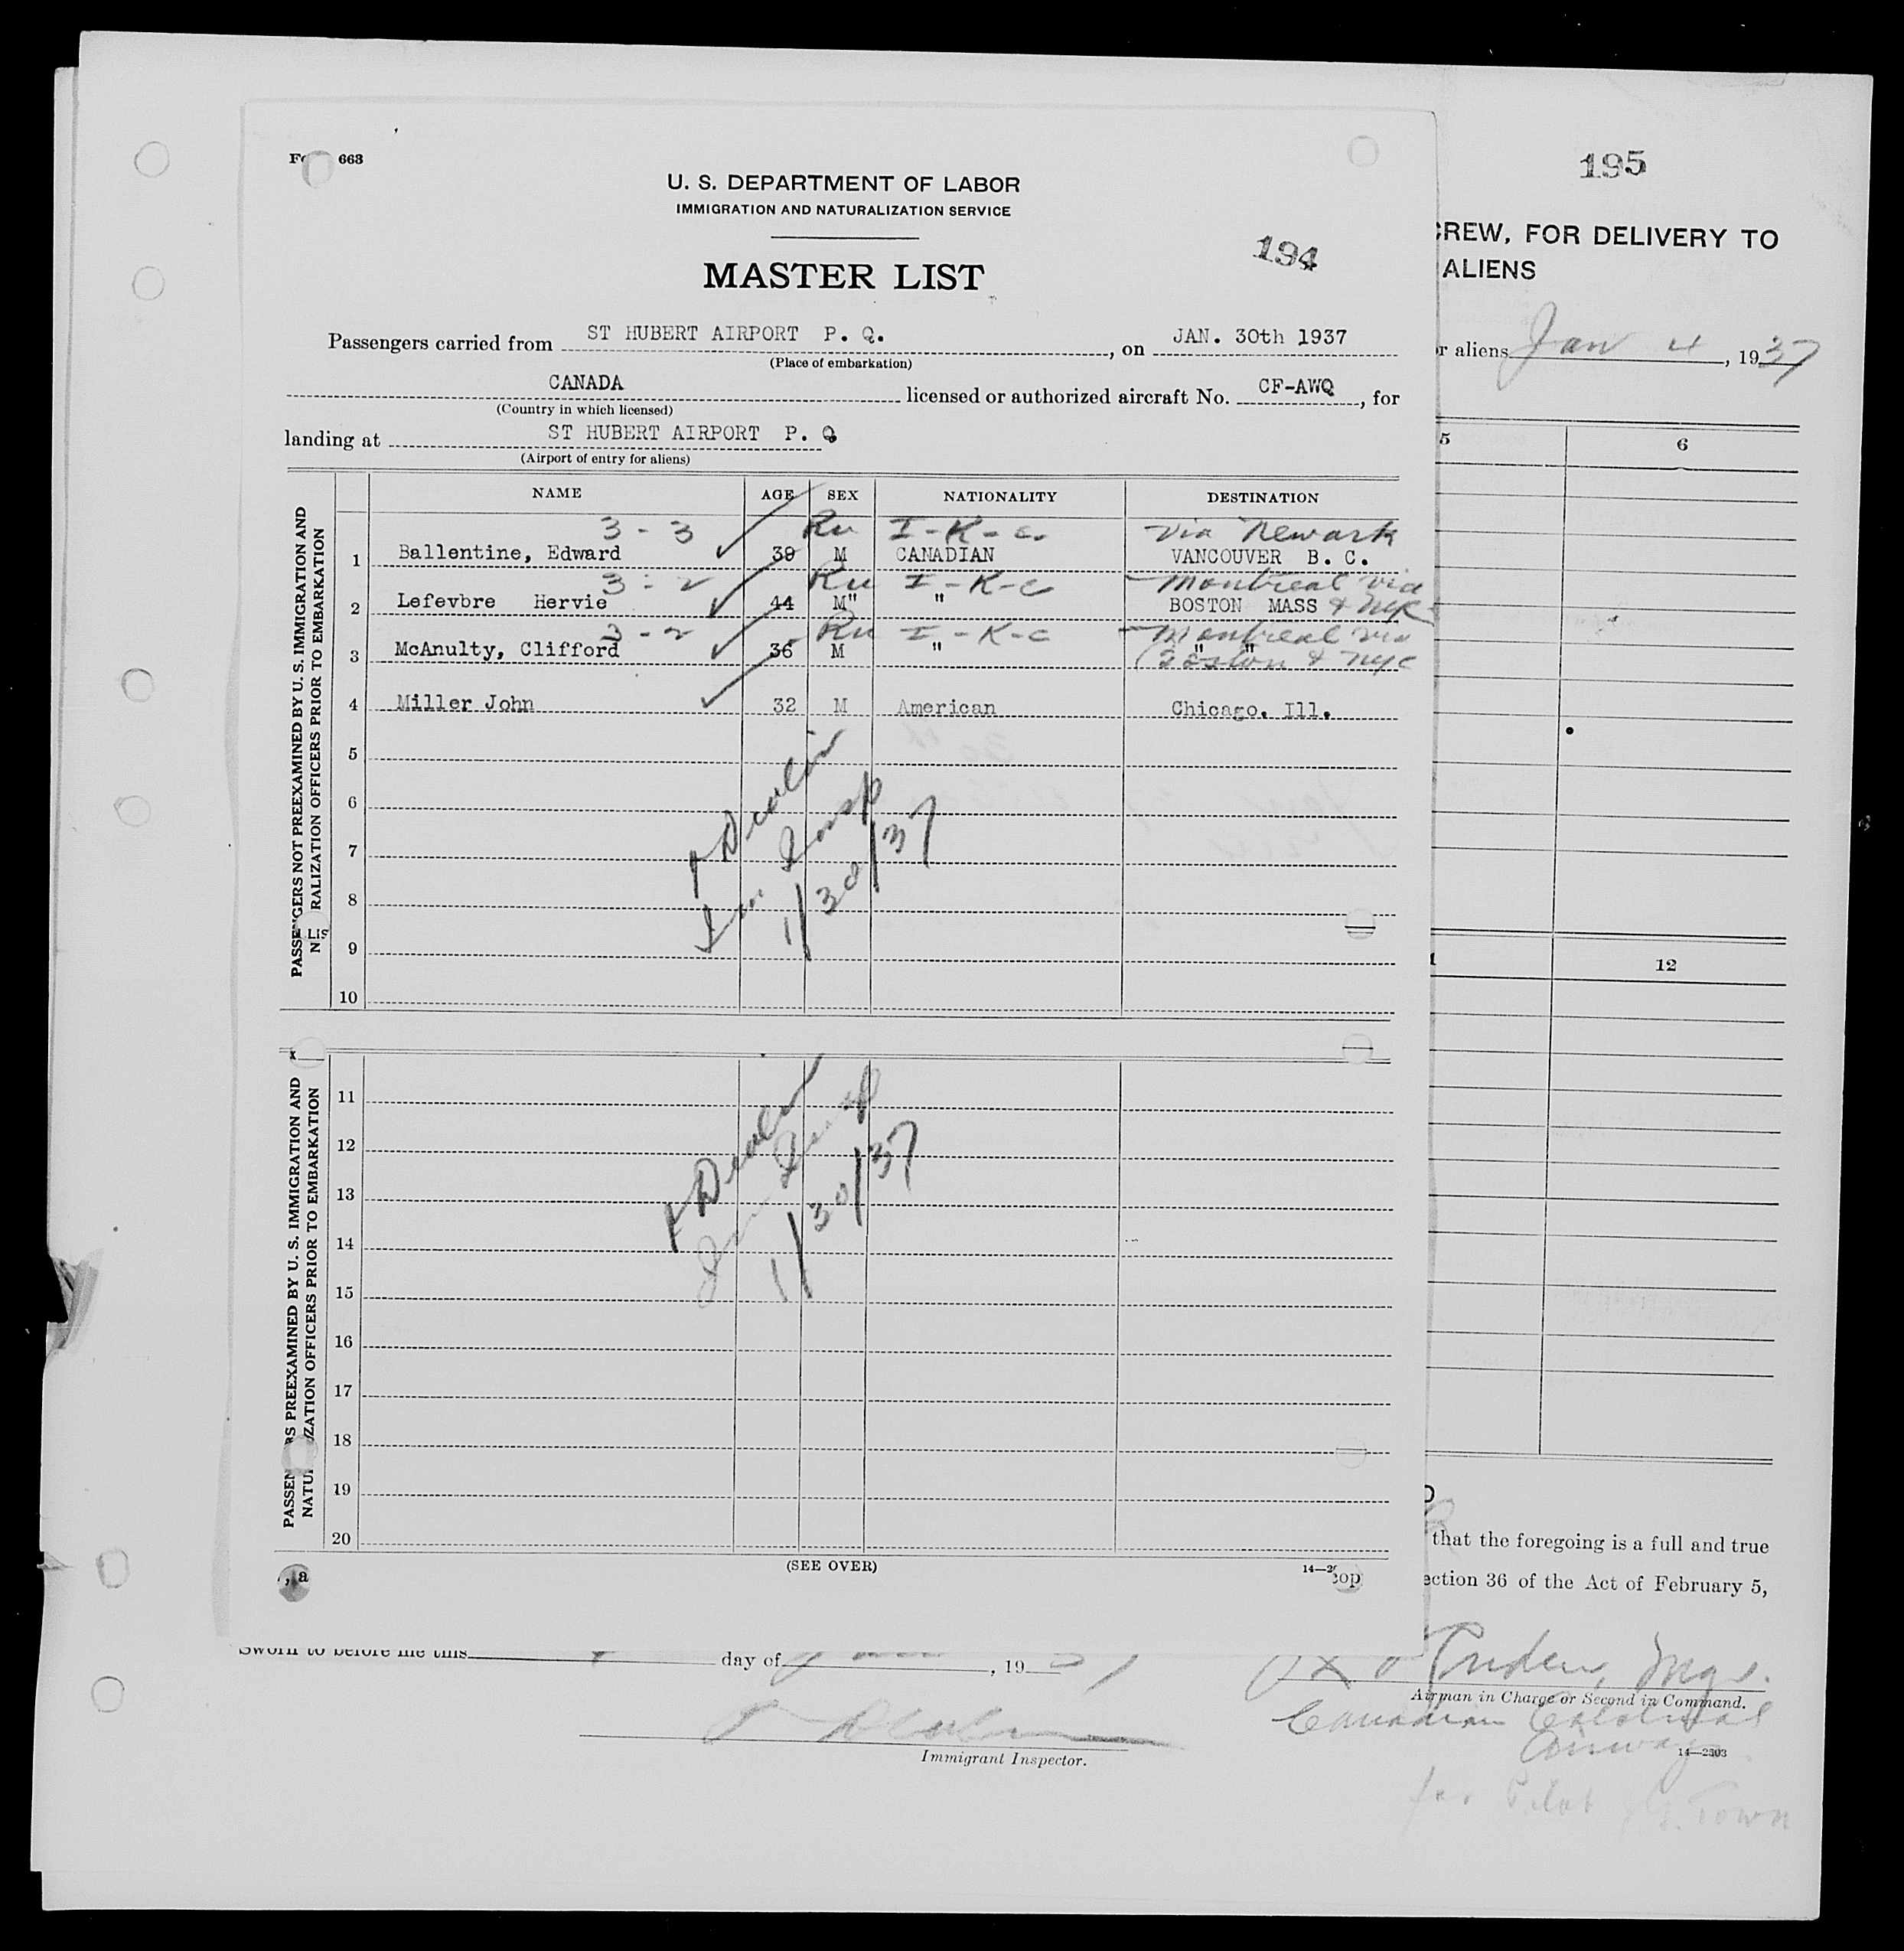 Fo 663
U. S. DEPARTMENT OF LABOR
IMMIGRATION AND NATURALIZATION SERVICE
194
MASTER LIST
Passengers carried from ST HUBERT AIRPORT P. Q. , on JAN. 30th 1937
(Place of embarkation)
CANADA licensed or authorized aircraft No. CF-AWQ , for
(Country in which licensed)
landing at ST HUBERT AIRPORT P. Q
(Airport of entry for aliens)
NAME AGE SEX NATIONALITY DESTINATION
3 - 3 Ru I-K-c. via Newark
1 Ballentine, Edward 39 M CANADIAN VANCOUVER B. C.
3 - 2 Ru I-K-c Montreal via
2 Lefevbre Hervie 44 M" " BOSTON MASS & NYC
3 - 2 Ru I-K-c Montreal via
3 McAnulty, Clifford 36 M " " " Boston & NYC
4 Miller John 32 M American Chicago. Ill.
5
6
7
8
9
10
1/30/37
PASSENGERS NOT PREEXAMINED BY U. S. IMMIGRATION AND
N RALIZATION OFFICERS PRIOR TO EMBARKATION
LIS
x
11
12
13
14
15
16
17
18
19
20
1/30/37
PASSEN RS PREEXAMINED BY U. S. IMMIGRATION AND
NATU ZATION OFFICERS PRIOR TO EMBARKATION
(SEE OVER)
14—2
, a
cop
195
CREW, FOR DELIVERY TO
ALIENS
or aliens Jan 4 , 1937
5 6
12
that the foregoing is a full and true
ection 36 of the Act of February 5,
Sworn to before me this day of , 19
Airman in Charge or Second in Command.
Canadian Colonial
Airways
Immigrant Inspector.
14—2303
for Pilot Town